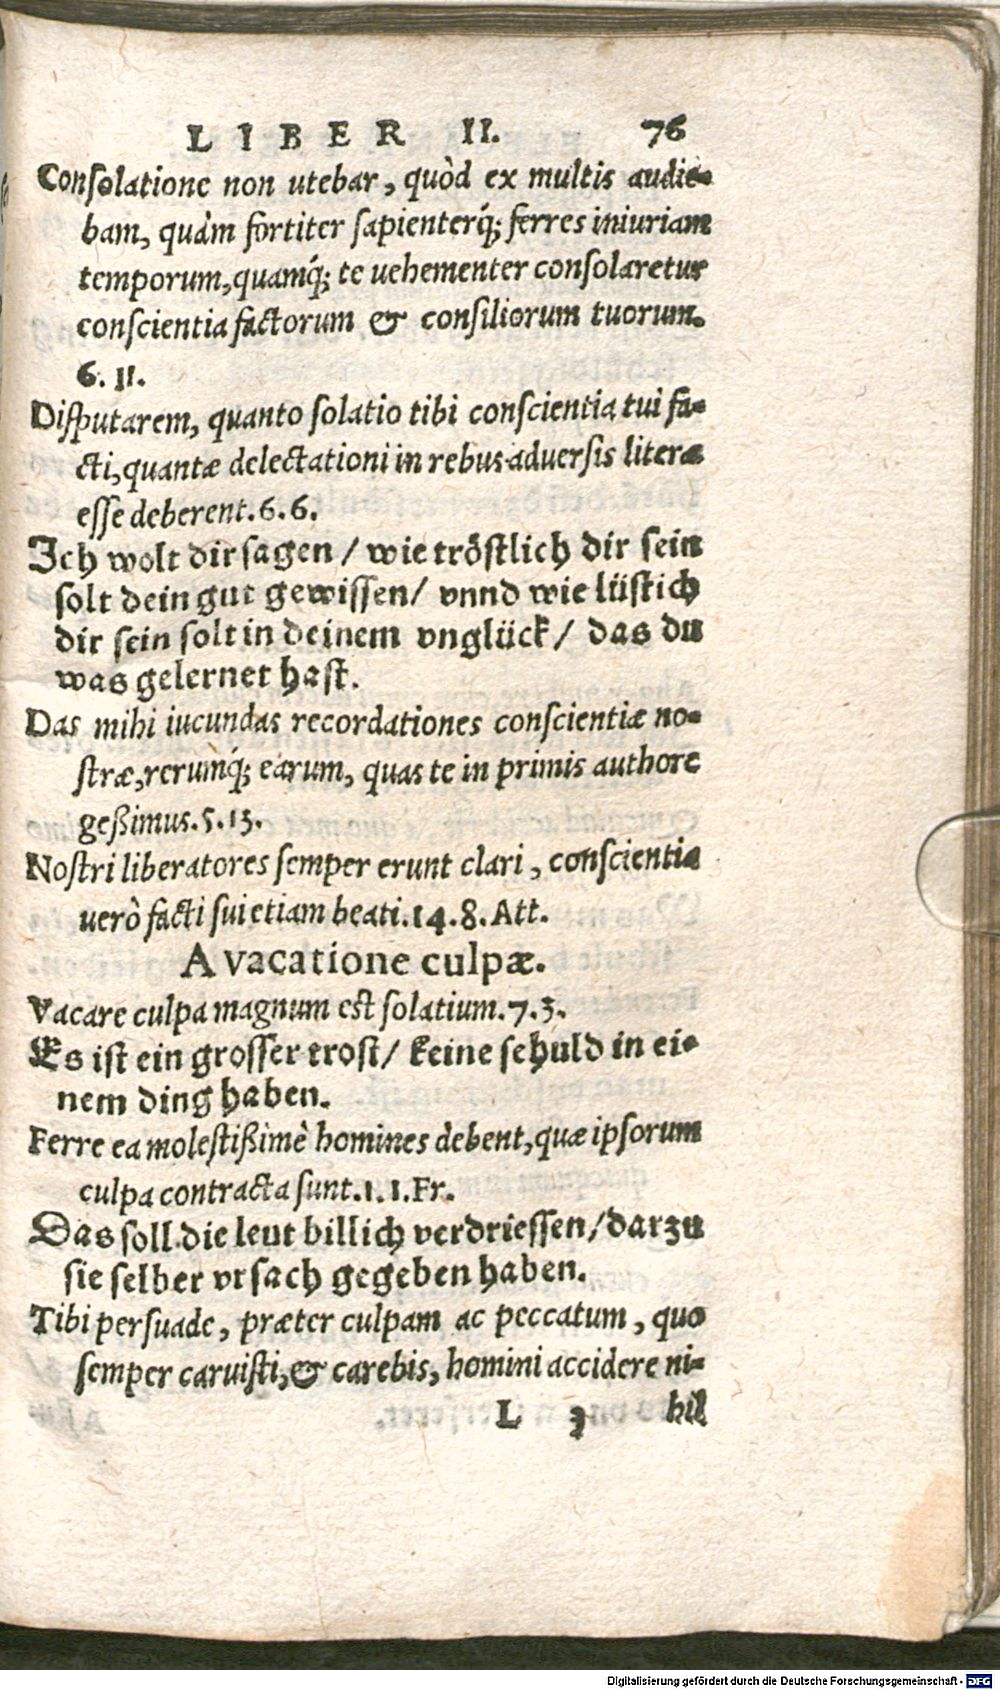 LIBER II. 76
Consolatione non utebar, quòd ex multis audie-
bam, quàm fortiter sapienterq́; ferres iniuriam
temporum, quamq́; te uehementer consolaretur
conscientia factorum & consiliorum tuorum.
6. 11.
Disputarem, quanto solatio tibi conscientia tui fa-
cti, quantæ delectationi in rebus aduersis literæ
esse deberent. 6. 6.
Ich wolt dir sagen / wie tröstlich dir sein
solt dein gut gewissen / vnnd wie lüstich
dir sein solt in deinem vnglück / das du
was gelernet hast.
Das mihi iucundas recordationes conscientiæ no-
stræ, rerumq́; earum, quas te in primis authore
geßimus. 5. 13.
Nostri liberatores semper erunt clari, conscientia
uerò facti sui etiam beati. 14. 8. Att.
A vacatione culpæ.
Vacare culpa magnum est solatium. 7. 3.
Es ist ein grosser trost / keine schuld in ei-
nem ding haben.
Ferre ea molestißimè homines debent, quæ ipsorum
culpa contracta sunt. 1. 1. Fr.
Das soll die leut billich verdriessen / darzu
sie selber vrsach gegeben haben.
Tibi persuade, præter culpam ac peccatum, quo
semper caruisti, & carebis, homini accidere ni-
L 3 hil
Digitalisierung gefördert durch die Deutsche Forschungsgemeinschaft - DFG